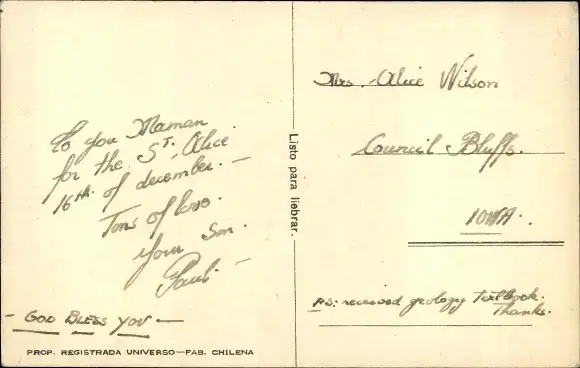 To you Maman
for the St. Alice
16th of december. —
Tons of love.
your Son.
Paul. —
- GOD BLESS YOU —
PROP. REGISTRADA UNIVERSO—FAB. CHILENA
Listo para liebrar.
Mrs. Alice Wilson
Council Bluffs.
IOWA.
PS: received geology TextBook.
Thanks.